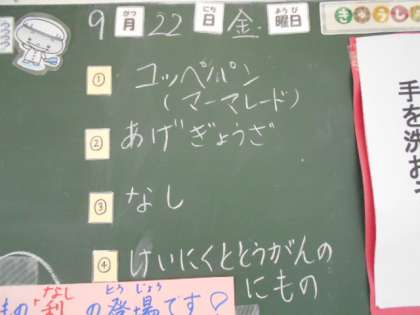 9月22日金曜日
きゅうしょ
① コッペパン
(マーマレード)
② あげぎょうざ
③ なし
④ けいにくととうがんの
にもの
手を洗お
もの「梨」の登場です♡